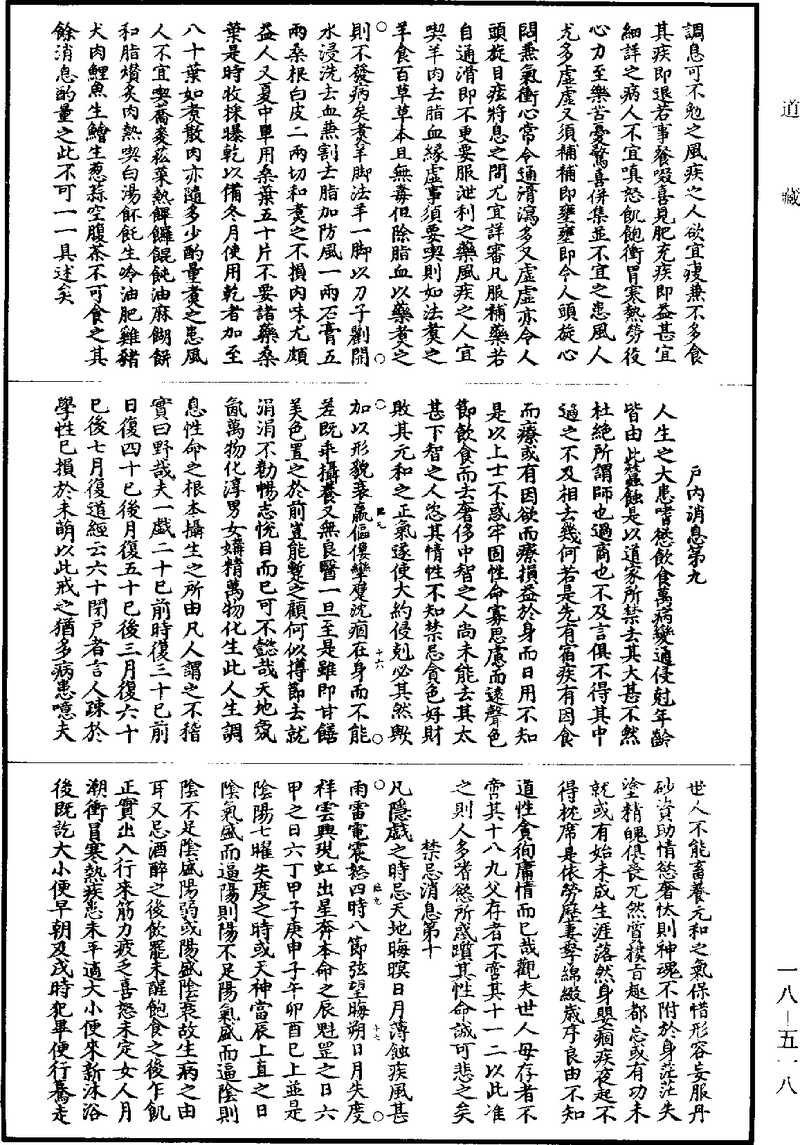 道藏
調息可不勉之風疾之人欲宜瘦兼不多食
其疾即退若事餐啜喜見肥充疾即益甚宜
細詳之病人不宜嗔怒飢飽衝冒寒熱勞役
心力至樂苦憂驚喜併集並不宜之患風人
尤多虛虛又須補補即壅壅即令人頭旋心
悶兼氣衝心常令通滑瀉多又虛虛亦令人
頭旋目眩將息之間尤宜詳審凡服補藥若
自通滑即不更要服泄利之藥風疾之人宜
喫羊肉去脂血緣虛事須要喫則如法煮之
羊食百草草本且無毒但除脂血以藥煮之
則不發病矣煮羊脚法羊一脚以刀子劉開
水浸洗去血兼割去脂加防風一兩石膏五
兩桑根白皮二兩切和煮之不損肉味尤頗
益人又夏中單用桑葉五十片不要諸藥桑
葉是時收採曝乾以備冬月使用乾者加至
八十葉如煮散肉亦隨多少酌量煮之患風
人不宜喫蕎麥菘菜熱餺飥餛飩油麻餬餅
和脂爤炙肉熱喫白湯飥生冷油肥雞豬
犬肉鯉魚生鱠生葱蒜空腹茶不可食之其
餘消息酌量之此不可一一具述矣
戶內消息第九
人生之大患嗜慾飲食萬病變通侵尅年齡
皆由此蠶蝕是以道家所禁去其大甚不然
杜絕所謂師也過商也不及言俱不得其中
過之不及相去幾何若是先有宿疾有因食
而療或有因欲而療損益於身而日用不知
是以上士不惑牢固性命寡思慮而遠聲色
節飲食而去奢侈中智之人尚未能去其太
甚下智之人恣其情性不知禁忌貪色好財
敗其元和之正氣遂使大約侵剋必其然歟
加以形貌衰羸傴僂攣躄沈痼在身而不能
差既乖攝養又無良醫一旦至是雖即甘饍
美色置之於前豈能蹔之顧何似撙節去就
涓涓不勸暢志悅目而已可不懿哉天地氛
氤萬物化淳男女媾精萬物化生此人生調
息性命之根本攝生之所由凡人謂之不稽
實曰野哉夫一戲二十已前時復三十已前
日復四十已後月復五十已後三月復六十
已後七月復道經云六十閉戶者言人疎於
學性已損於未萌以此戒之猶多病患噫夫
世人不能畜養元和之氣保惜形容妄服丹
砂資助情慾奢忲則神魂不附於身茫茫失
塗精魄俱喪兀然瞢樸旨趣都忘或有功未
就或有始未成生涯落然身嬰痼疾夜起不
得枕席是依勞歷重擊綿綴歲序良由不知
道性貪徇庸情而已哉觀夫世人母存者不
啻其十八九父存者不啻其十一二以此准
之則人多者慾所惑躓其性命誠可悲之矣
禁忌消息第十
凡隱戲之時忌天地晦暝日月薄蝕疾風甚
雨雷電震怒四時八節弦望晦朔日月失度
祥雲興現虹出星奔本命之辰魁罡之日六
甲之日六丁甲子庚申子午卯酉已上並是
陰陽七曜失度之時或天神當辰上直之日
陰氣盛而逼陽則陽不足陽氣盛而逼陰則
陰不足陰盛陽弱或陽盛陰衰故生病之由
耳又忌酒醉之後飲罷未醒飽食之後乍飢
正實出入行來筋力疲乏喜怒未定女人月
潮衝冒寒熱疾患未平適大小便來新沐浴
後既訖大小便早朝及戌時犯畢便行驀走
一八—五一八